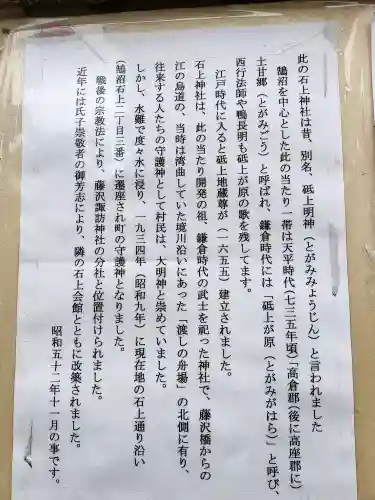 此の石上神社は昔、別名、砥上明神(とがみみょうじん)と言われました
鵠沼を中心とした此の当たり一帯は天平時代(七三五年頃)「高倉郡(後に高座郡に)
土甘郷(とがみごう)と呼ばれ、鎌倉時代には「砥上が原(とがみがはら)」と呼び、
西行法師や鴨長明も砥上が原の歌を残してます。
江戸時代に入ると砥上地蔵尊が(一六五五)建立されました。
石上神社は、此の当たり開発の祖、鎌倉時代の武士を祀った神社で、藤沢橋からの
江の島道の、当時は湾曲していた境川沿いにあった「渡しの舟場」の北側に有り、
往来する人たちの守護神として村民は、大明神と崇めていました。
しかし、水難で度々水に浸り、一九三四年(昭和九年)に現在地の石上通り沿い
(鵠沼石上二丁目三番)に遷座され町の守護神となりました。
戦後の宗教法により、藤沢諏訪神社の分社と位置付けられました。
近年には氏子崇敬者の御芳志により、隣の石上会館とともに改築されました。
昭和五十二年十一月の事です。